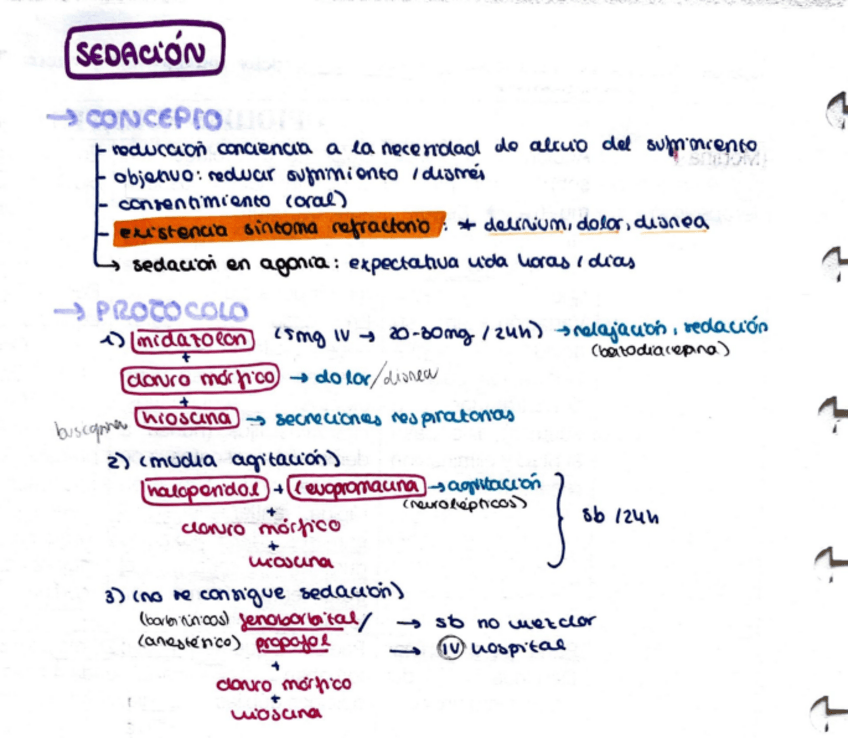 SEDACIÓN
→ CONCEPTO
- reducción conciencia a la necesidad de alivio del sufrimiento
- objetivo: reducir sufrimiento / distrés
- consentimiento (oral)
- existencia síntoma refractario : * delirium, dolor, disnea
→ sedación en agonía: expectativa vida horas / días
→ PROTOCOLO
1) midazolan (5mg IV → 20-30mg / 24h) → relajación, sedación
+ (benzodiacepina)
cloruro mórfico → dolor/disnea
+
buscapina hioscina → secreciones respiratorias
2) (mucha agitación)
haloperidol + levopromacina → agitación
+ (neurolépticos)
cloruro mórfico
+
hioscina
sb / 24h
3) (no se consigue sedación)
(barbitúricos) fenobarbital / → sb no mezclar
(anestésico) propofol → IV hospital
+
cloruro mórfico
+
hioscina